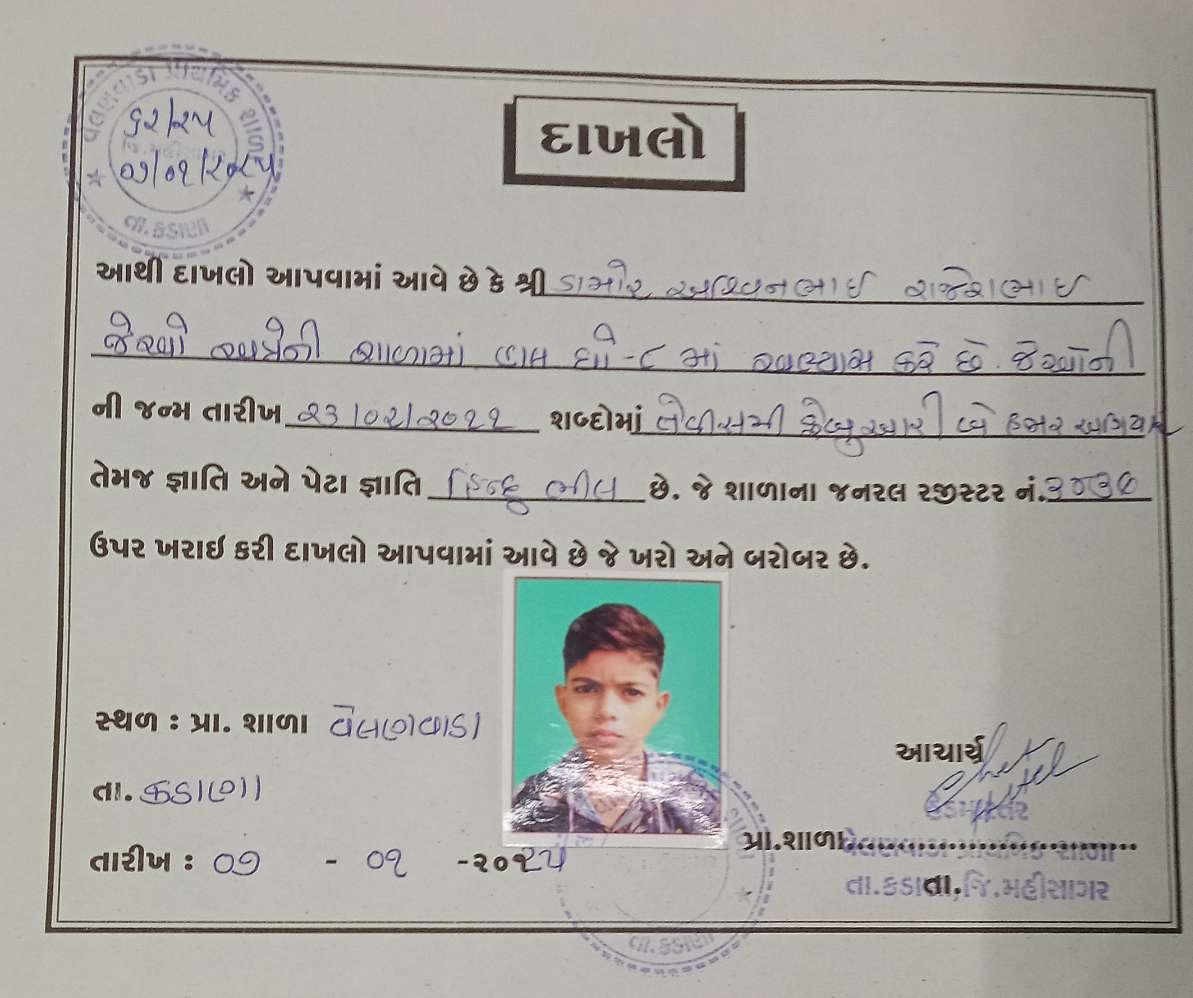 વેલણવાડા પ્રાથમિક શાળા
૬૨/૨૫
૦૭/૦૧/૨૦૨૫
તા.કડાણા
દાખલો
આથી દાખલો આપવામાં આવે છે કે શ્રી ડામોર અશ્વિનભાઈ રાજેશભાઈ
જેઓ અત્રેની શાળામાં હાલ ધો-૮ માં અભ્યાસ કરે છે. જેઓની
ની જન્મ તારીખ ૨૩/૦૨/૨૦૧૧ શબ્દોમાં તેવીસમી ફેબ્રુઆરી બે હજાર અગિયાર
તેમજ જ્ઞાતિ અને પેટા જ્ઞાતિ હિન્દુ ભીલ છે. જે શાળાના જનરલ રજીસ્ટર નં.
ઉપર ખરાઈ કરી દાખલો આપવામાં આવે છે જે ખરો અને બરોબર છે.
સ્થળ : પ્રા. શાળા વેલણવાડા
આચાર્ય
તા. કડાણા
હેડમાસ્તર
પ્રા.શાળા
વેલણવાડા પ્રાથમિક શાળા
તારીખ : ૦૭ - ૦૧ -૨૦૨૫
તા.કડાણા, જિ.મહીસાગર
તા.
તા.કડાણા